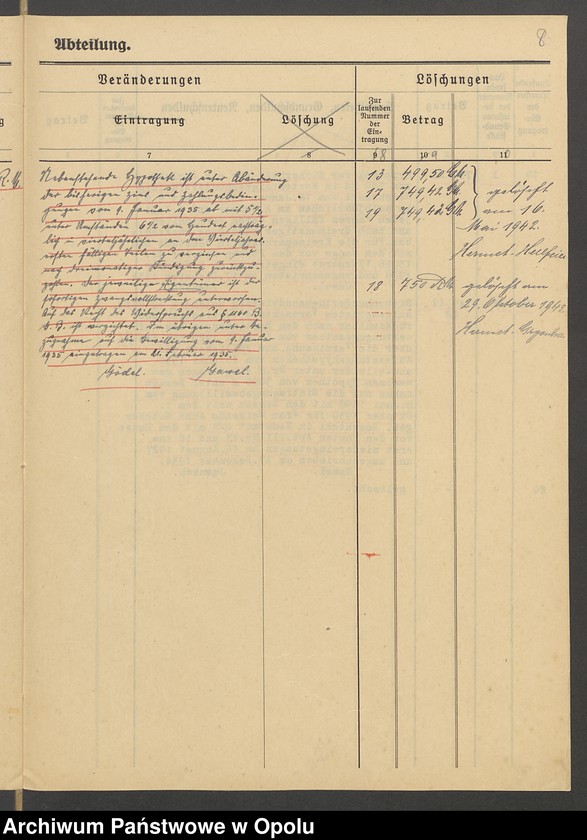 8
Abteilung.
Veränderungen
Löschungen
Eintragung
Löschung
Zur laufenden Nummer der Eintragung
Betrag
7
8
9 8
10 9
11
Nebenstehende Hypothek ist unter Abänderung
der bisherigen Zins und Zahlungsbedin-
gungen vom 1. Januar 1935 ab mit 5%
unter Umständen 6% vom Hundert
in vierteljährlichen an den
fälligen Teilen zu verzinsen und
nach dreimonatiger Kündigung
Der jeweilige Eigentümer ist der
sofortigen Zwangsvollstreckung unterworfen.
Auf das Recht des Widerspruchs aus § 1160 B.
G. B. ist verzichtet. Im übrigen unter Be-
zugnahme auf die Bewilligung vom 9. Januar
1935 eingetragen am 21. Februar 1935.
Gödel. Gawel.
13 499,50 GM.
17 749,42 GM.
19 749,42 GM.
gelöscht
am 16.
Mai 1942.
18 750
gelöscht am
29. Oktober 1942.
Archiwum Państwowe w Opolu